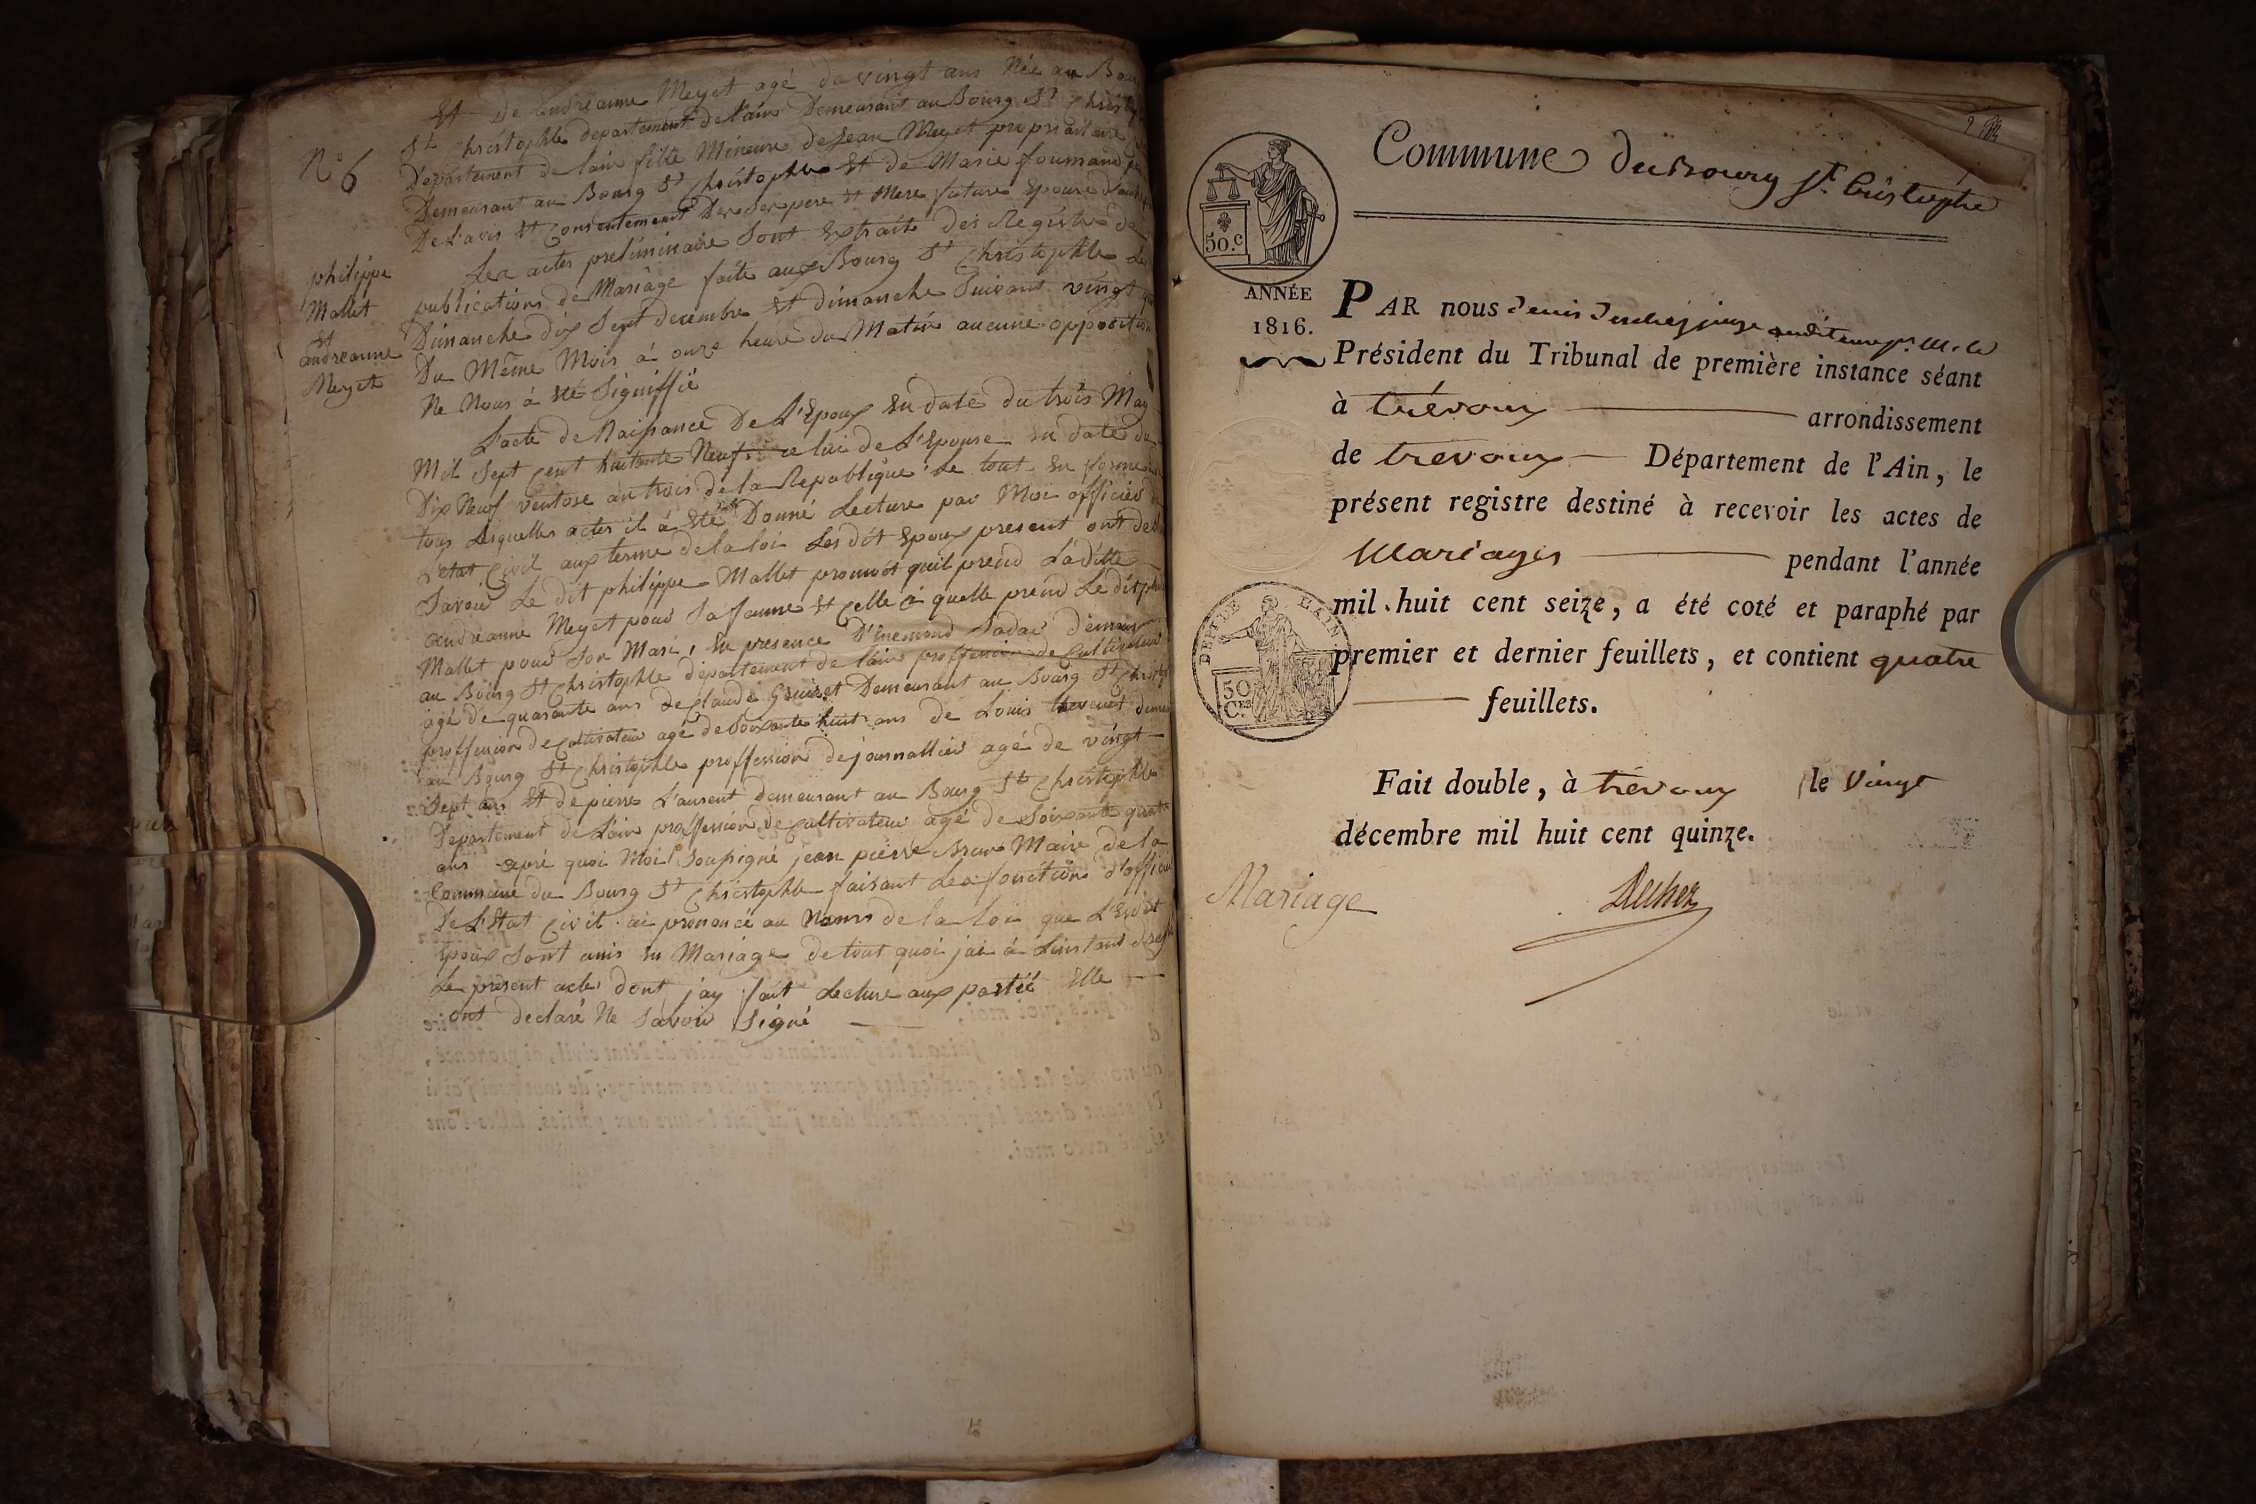 N° 6
philippe
Mallet
et
andréanne
Meyet
Et De andréanne Meyet agé de vingt ans Née au Bourg
St Christophle departement de l'ain Demeurant au Bourg St Christ
Departement de lain fille Mineure de Jean Meyet propriaitaire
Demeurant au Bourg St Christophle et de Marie foumand
De L'avis et Consentement De Ses pere et Mere future Epouse D'autre
Les actes preliminaire Sont Extraits des Registre de
publications de Mariage faite aux Bourg St Christophle Le
Dimanche dix Sept decembre et dimanche Suivant vingt
Du Même Mois á onze heure du Matin aucune opposition
Ne Nous á été Signiffié
L'acte de Naissance De L'Epoux En date du trois May
Mil Sept Cent huitante Neuf celui de L'Epouse En date du
Dix Neuf ventose an trois de la Republique Le tout En forme
tous Lesquelles actes il á Eté Donné Lecture par Moi officier de
L'etat Civil aux terme de la loi Les dit Epoux present ont
Savoir Le dit philippe Mallet qu'il prend La ditte
andréanne Meyet pour Sa famme et Celle á quelle prend Le dit
Mallet pour Son Mari, En presence D'Enemond Sadar demeur
au Bourg St Christophle departement de l'ain proffession de Cultivateur
agé de quarante ans de Claude Demeurant au Bourg St Christ
proffession de Cultivateur agé de Soixante huit ans de Louis demeu
au Bourg St Christophle proffession de journallier agé de vingt
Sept ans Et de pierre Laurent demeurant au Bourg St Christophle
Departement de L'ain proffession de Cultivateur agé de Soixante quatre
ans apré quoi Moi Soussigné jean pierre Maire de la
Commune du Bourg St Christophle faisant Les fonction d'officier
De L'Etat Civil ai prononcé au Nom de la loi que L'Esdit
Epoux Sont unis En Mariage de tout quoi jai á Linstant
Le present acte dont jay fait Lecture aux partié Elle
ont declaré Ne Savoir Signé
Commune du Bourg St Cristophe
50.c
ANNÉE
1816.
PAR nous Denis juge auditeur pr. M. le
Président du Tribunal de première instance séant
à trévoux arrondissement
de trevoux Département de l'Ain, le
présent registre destiné à recevoir les actes de
Mariages pendant l'année
mil huit cent seize, a été coté et paraphé par
premier et dernier feuillets, et contient quatre
feuillets.
DEP. DE L'AIN
50
C.ES
Fait double, à trévoux le vingt
décembre mil huit cent quinze.
Mariage